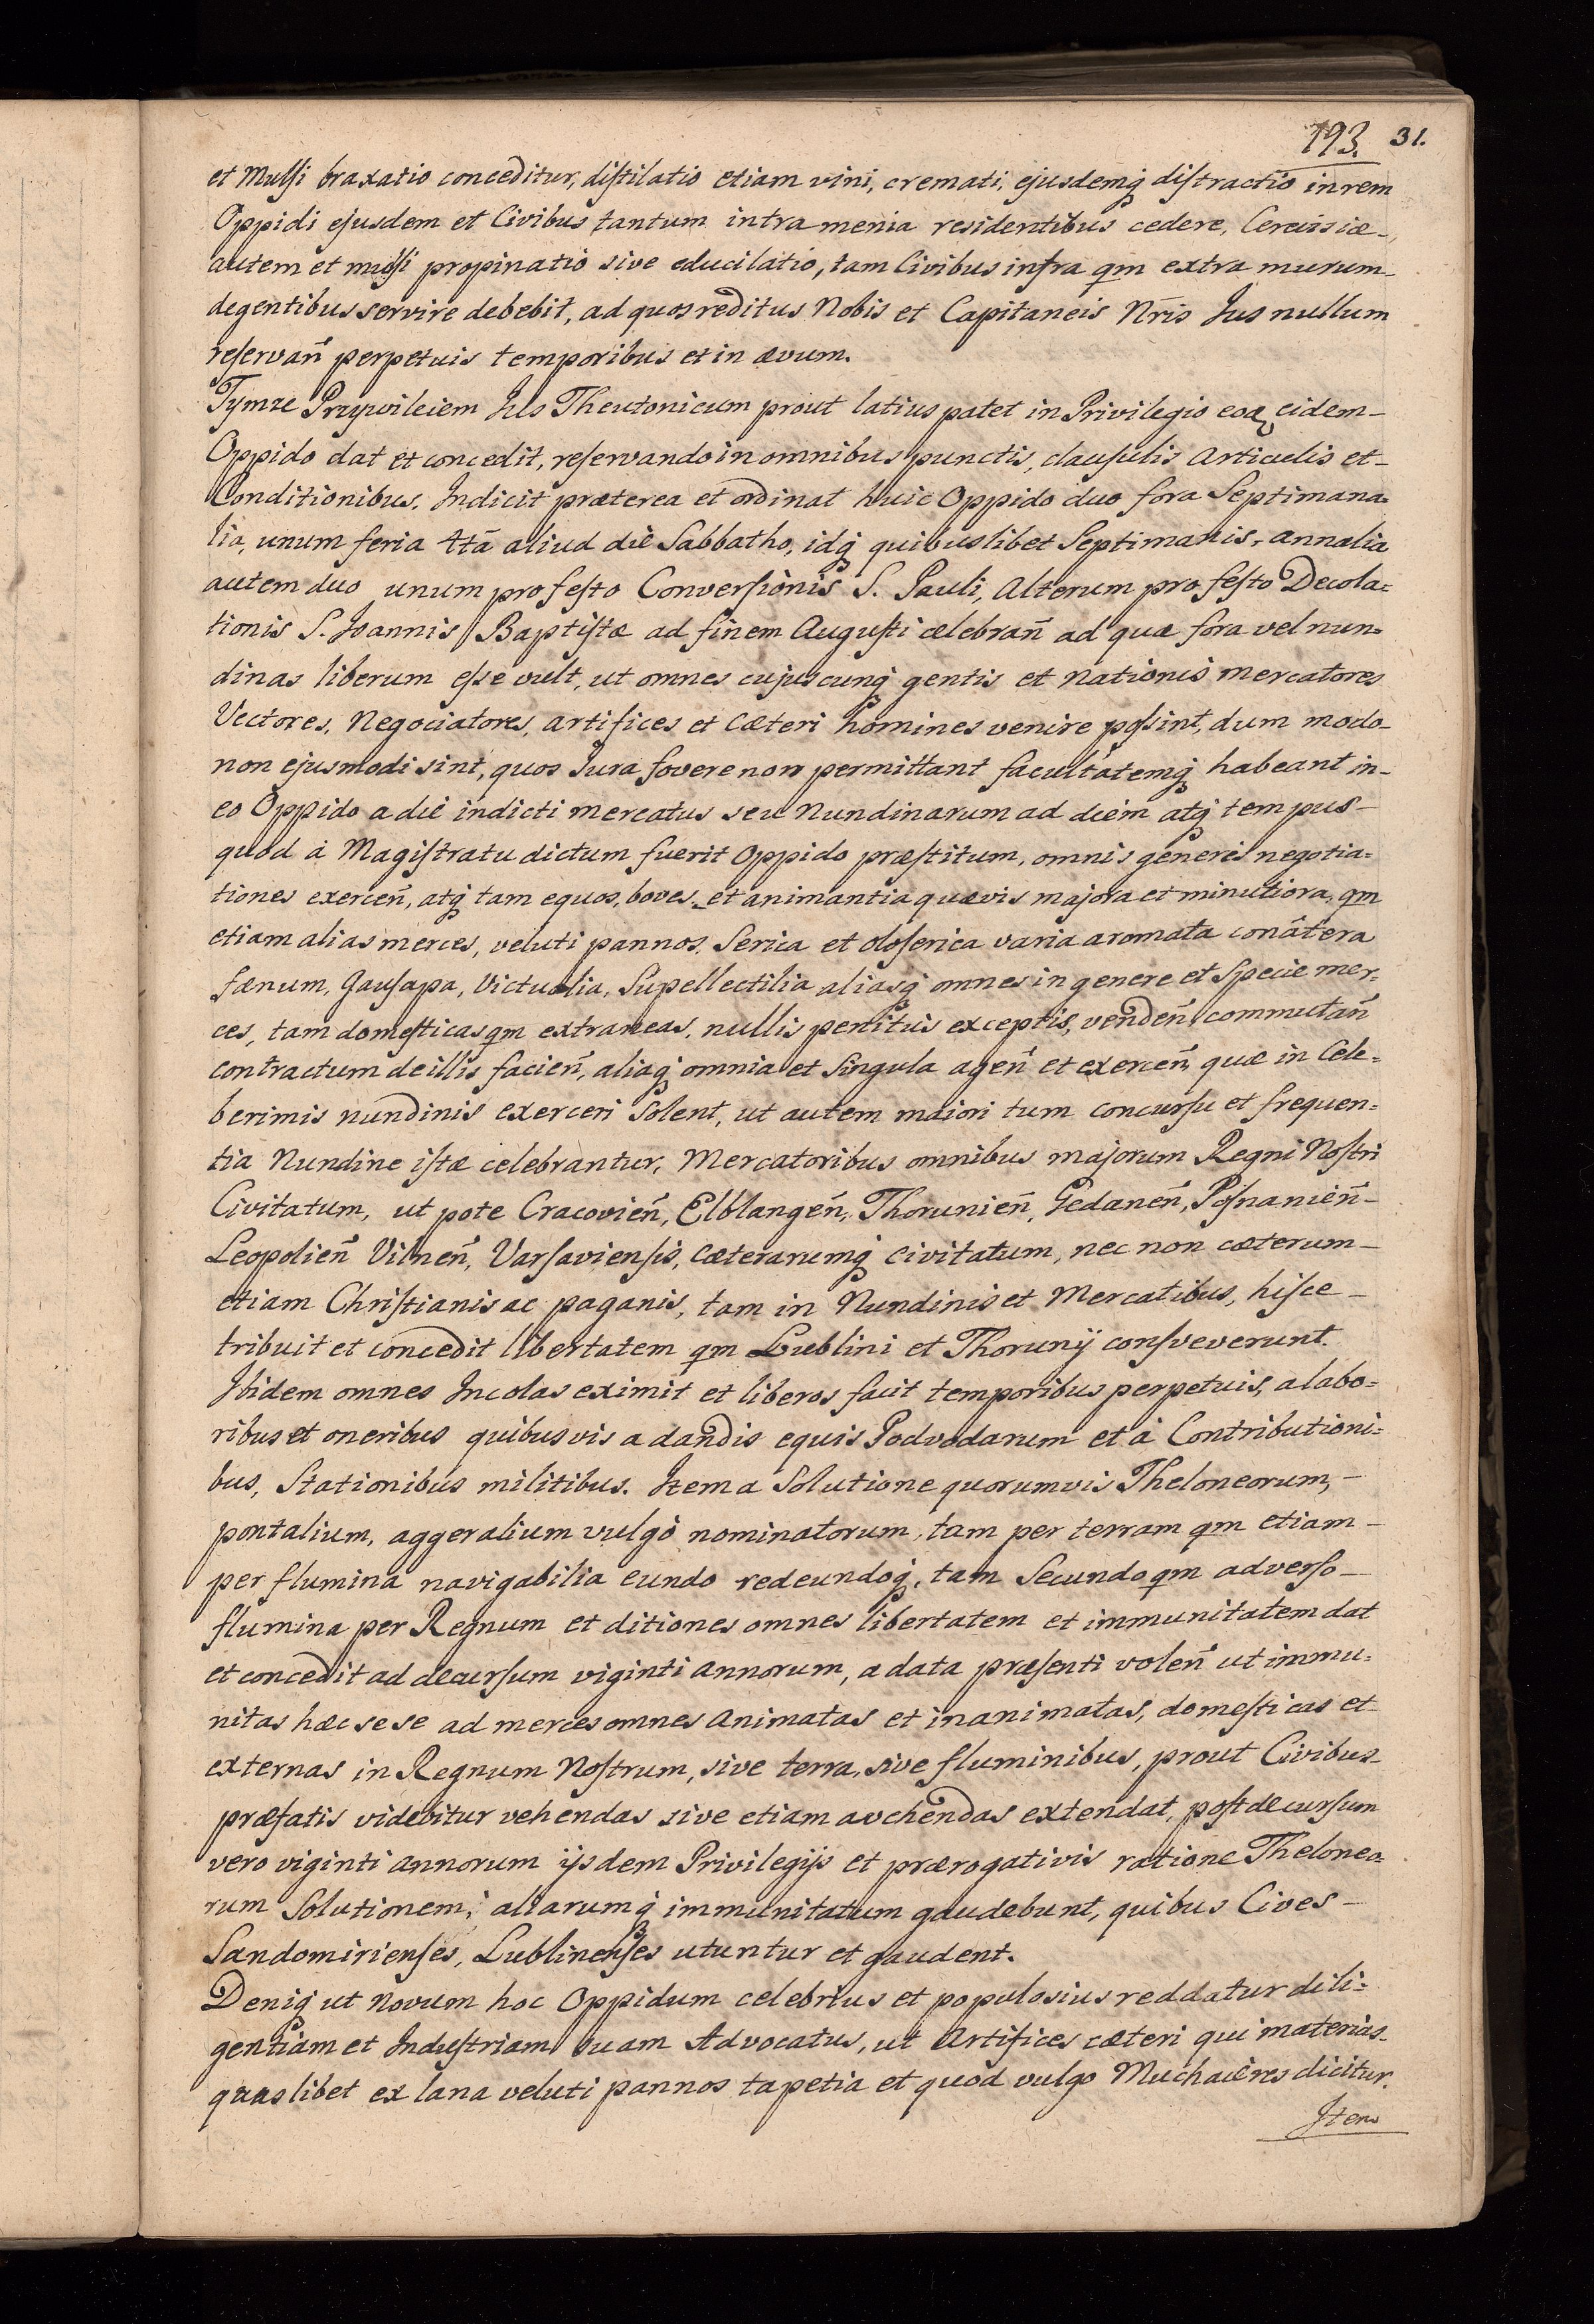 193. 31.
et Mulſi braxatio conceditur, diſtilatio etiam vini, cremati, ejusdemq́ diſtractio in rem
Oppidi ejusdem et Civibus tantum intra menia residentibus cedere, Cerevisiæ-
autem et mulſi propinatio sive educilatio, tam Civibus infra qm extra murum-
degentibus servire debebit, ad quos reditus Nobis et Capitaneis Nr̃is Jus nullum
reſervan̄ perpetuis temporibus et in ævum.
Tymze Przywileiem Jus Theutonicum prout latius patet in Privilegio eoꝝ eidem-
Oppido dat et concedit, reſervando in omnibus punctis, clauſulis Articulis et-
Conditionibus. Indicit præterea et ordinat huic Oppido duo fora Septimana=
lia, unum feria tt̄a aliud die Sabbatho, idq́ quibuslibet Septimanis, annalia
autem duo unum pro feſto Converſionis S. Pauli, Alterum pro feſto Decola=
tionis S. Joannis Baptiſtæ ad finem Auguſti celebran̄ ad quæ fora vel nun=
dinas liberum eſse vult, ut omnes cujuscunq́ gentis et nationis mercatores
Vectores, Negociatores, artifices et Cæteri homines venire poſsint, dum modo
non ejusmodi sint, quos Jura fovere non permittant facultatemq́ habeant in-
eo Oppido a die indicti mercatus seu Nundinarum ad diem atq́ tempus-
quod à Magiſtratu dictum fuerit Oppido præſtitum, omnis generis negotia=
tiones exercen̄, atq́ tam equos, boves, et animantia quævis majora et minutiora, qm
etiam alias merces, veluti pannos, Serica et oloſerica varia aromata
fænum, Gauſapa, Victualia, Supellectilia aliasq́ omnes in genere et Specie mer=
ces, tam domeſticas qm extraneas, nullis penitus exceptis, venden̄, commutan̄
contractum de illis facien̄, aliaq́ omnia et Singula agen̄ et exercen̄, quæ in Cele=
berimis nundinis exerceri Solent, ut autem maiori tum concurſu et frequen=
tia Nundine iſtæ celebrantur, Mercatoribus omnibus majorum Regni Noſtri
Civitatum, ut pote Cracovien̄, Elblangen̄, Thorunien̄, Gedanen̄, Poſnanien̄-
Leopolien̄ Vilnen̄, Varſavienſis, cæterarumq́ civitatum, nec non cæterum-
etiam Chriſtianis ac paganis, tam in Nundinis et Mercatibus, hiſce-
tribuit et concedit libertatem qm Lublini et Thorunij conſveverunt.
Ibidem omnes Incolas eximit et liberos facit temporibus perpetuis, a labo=
ribus et oneribus quibusvis a dandis equis Podvodarum et à Contributioni=
bus, Stationibus militibus. Item a Solutione quorumvis Theloneorum,-
pontalium, aggeralium vulgò nominatorum, tam per terram qm etiam-
per flumina navigabilia eundo redeundoq́, tam Secundo qm adverſo-
flumina per Regnum et ditiones omnes libertatem et immunitatem dat
et concedit ad decurſum viginti annorum, a data præſenti volen̄ ut immu=
nitas hæc sese ad merces omnes animatas et inanimatas, domeſticas et
externas in Regnum Noſtrum, sive terra, sive fluminibus, prout Civibus-
præfatis videbitur vehendas sive etiam avehendas extendat, poſt decurſum
vero viginti annorum ijsdem Privilegijs et prærogativis ratione Theloneo=
rum Solutionem, aliarumq́ immunitatum gaudebunt, quibus Cives-
Sandomirienſes, Lublinenſes utuntur et gaudent.
Deniq́ ut novum hoc Oppidum celebrius et populosius reddatur dili=
gentiam et Induſtriam suam Advocatus, ut Artifices cæteri qui materias-
quaslibet ex lana veluti pannos tapetia et quod vulgo Muchaieres dicitur.
Item